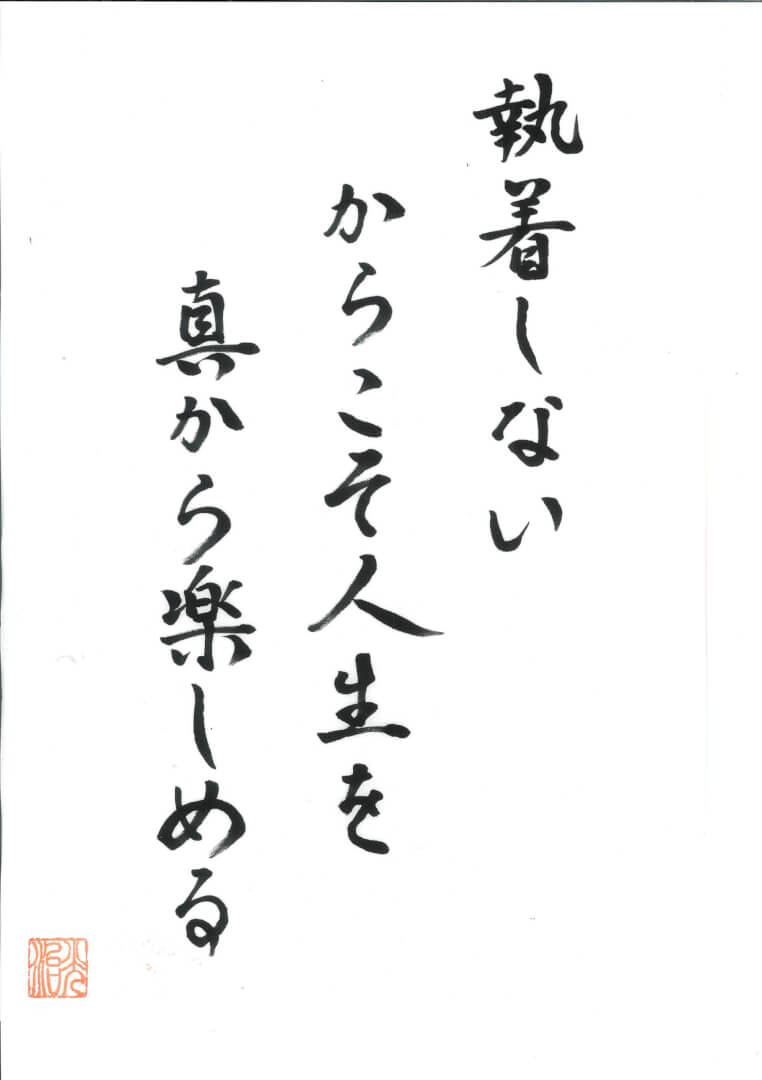 執着しない
からこそ人生を
真から楽しめる